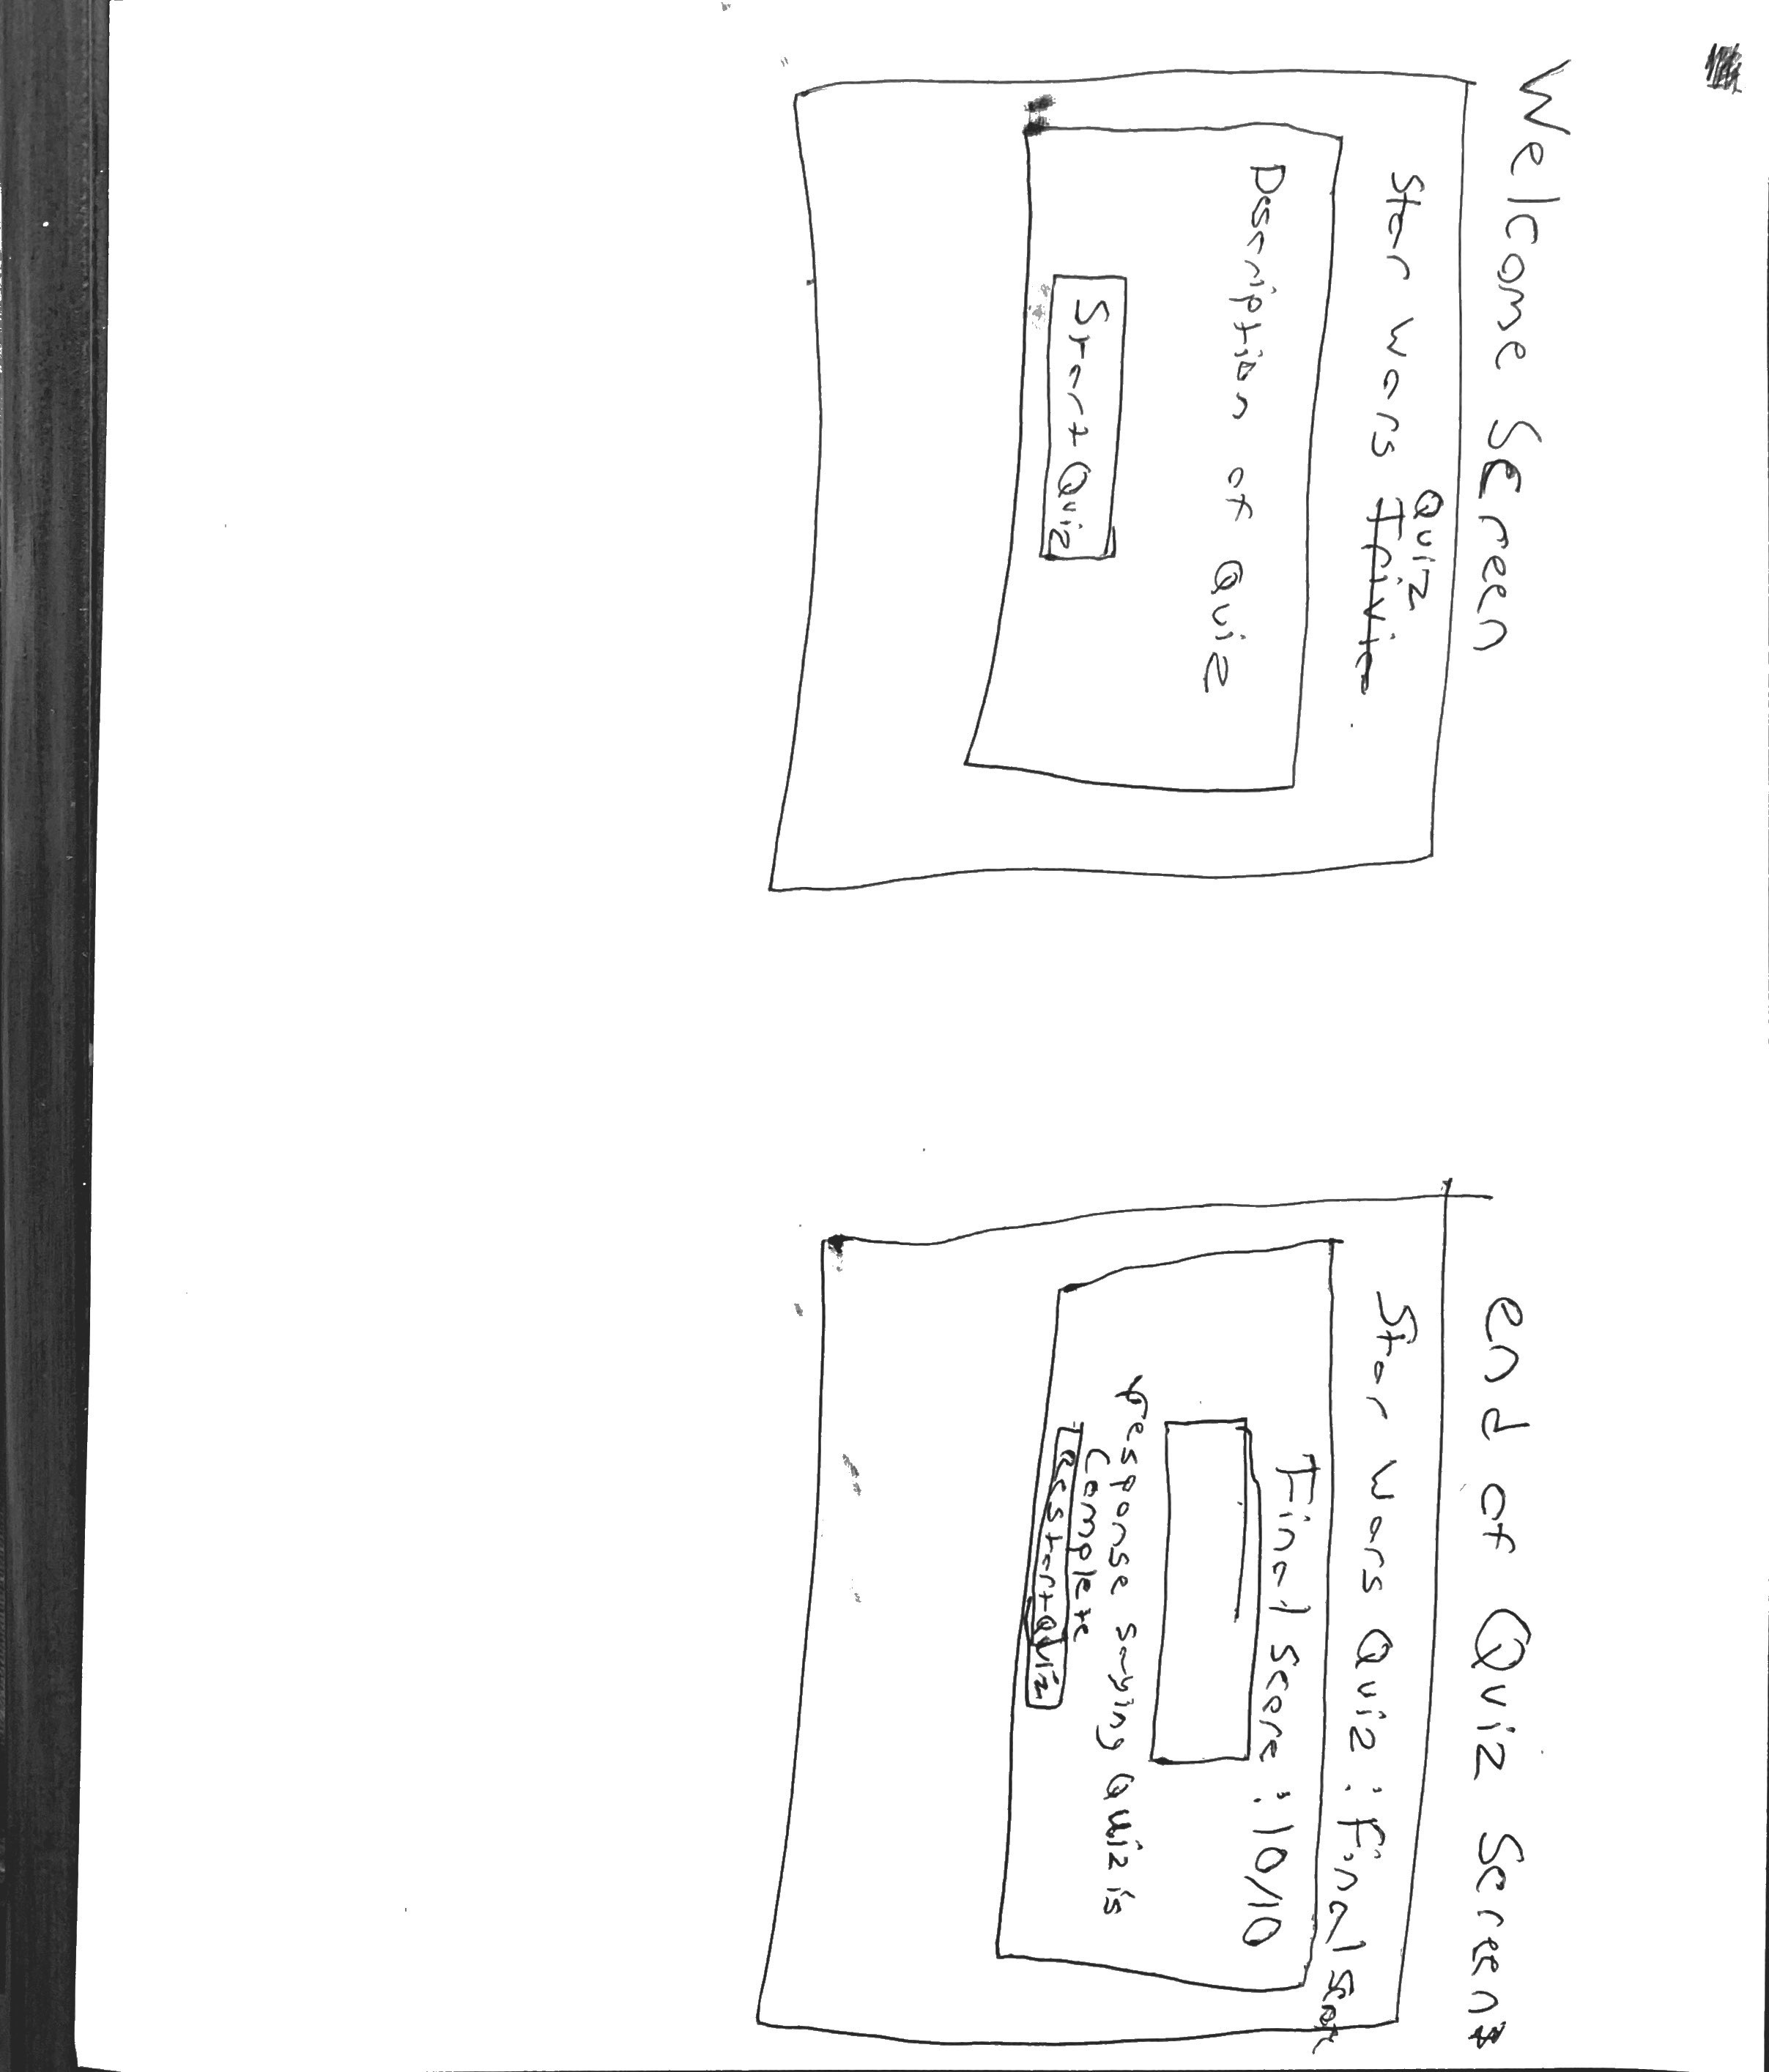 Welcome Screen
Star Wars Trivia
Quiz
Description of Quiz
Start Quiz
end of Quiz Screens
Star Wars Quiz : Final Score
Final Score : 10/10
response saying Quiz is
Complete
Restart Quiz